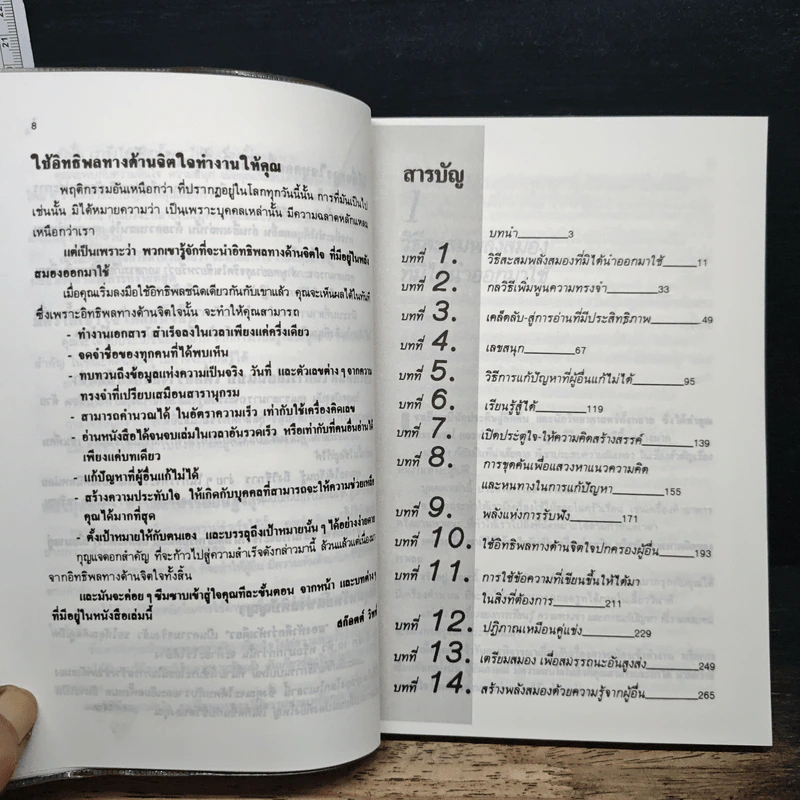 22
21
8
ใช้อิทธิพลทางด้านจิตใจทำงานให้คุณ
พฤติกรรมอันเหนือกว่า ที่ปรากฏอยู่ในโลกทุกวันนี้นั้น การที่มันเป็นไป
เช่นนั้น มิได้หมายความว่า เป็นเพราะบุคคลเหล่านั้น มีความฉลาดหลักแหลม
เหนือกว่าเรา
แต่เป็นเพราะว่า พวกเขารู้จักที่จะนำอิทธิพลทางด้านจิตใจ ที่มีอยู่ในพลัง
สมองออกมาใช้
เมื่อคุณเริ่มลงมือใช้อิทธิพลชนิดเดียวกันกับเขาแล้ว คุณจะเห็นผลได้ในทันที
ซึ่งเพราะอิทธิพลทางด้านจิตใจนั้น จะทำให้คุณสามารถ
- ทำงานเอกสาร สำเร็จลงในเวลาเพียงแค่ครึ่งเดียว
- จดจำชื่อของทุกคนที่ได้พบเห็น
- ทบทวนถึงข้อมูลแห่งความเป็นจริง วันที่ และตัวเลขต่างๆ จากความ
ทรงจำที่เปรียบเสมือนสารานุกรม
- สามารถคำนวณได้ ในอัตราความเร็ว เท่ากับใช้เครื่องคิดเลข
- อ่านหนังสือได้จนจบเล่มในเวลาอันรวดเร็ว หรือเท่ากับที่คนอื่นอ่านได้
เพียงแค่บทเดียว
- แก้ปัญหาที่ผู้อื่นแก้ไม่ได้
- สร้างความประทับใจ ให้เกิดกับบุคคลที่สามารถจะให้ความช่วยเหลือ
คุณได้มากที่สุด
- ตั้งเป้าหมายให้กับตนเอง และบรรลุถึงเป้าหมายนั้น ๆ ได้อย่างง่ายดาย
กุญแจดอกสำคัญ ที่จะก้าวไปสู่ความสำเร็จดังกล่าวมานี้ ล้วนแล้วแต่เนื่องมา
จากอิทธิพลทางด้านจิตใจทั้งสิ้น
และมันจะค่อย ๆ ซึมซาบเข้าสู่ใจคุณทีละขั้นตอน จากหน้า และบทต่าง ๆ
ที่มีอยู่ในหนังสือเล่มนี้
สก๊อตต์ วิทท์
สารบัญ
บทนำ______3
บทที่ 1. วิธีสะสมพลังสมองที่มิได้นำออกมาใช้______11
บทที่ 2. กลวิธีเพิ่มพูนความทรงจำ______33
บทที่ 3. เคล็ดลับ-สู่การอ่านที่มีประสิทธิภาพ______49
บทที่ 4. เลขสนุก______67
บทที่ 5. วิธีการแก้ปัญหาที่ผู้อื่นแก้ไม่ได้______95
บทที่ 6. เรียนรู้สู้ได้______119
บทที่ 7. เปิดประตูใจ-ให้ความคิดสร้างสรรค์______139
บทที่ 8. การขุดค้นเพื่อแสวงหาแนวความคิด
และหนทางในการแก้ปัญหา______155
บทที่ 9. พลังแห่งการรับฟัง______171
บทที่ 10. ใช้อิทธิพลทางด้านจิตใจปกครองผู้อื่น______193
บทที่ 11. การใช้ข้อความที่เขียนขึ้นให้ได้มา
ในสิ่งที่ต้องการ______211
บทที่ 12. ปฏิภาณเหมือนคู่แข่ง______229
บทที่ 13. เตรียมสมอง เพื่อสมรรถนะอันสูงส่ง______249
บทที่ 14. สร้างพลังสมองด้วยความรู้จากผู้อื่น______265